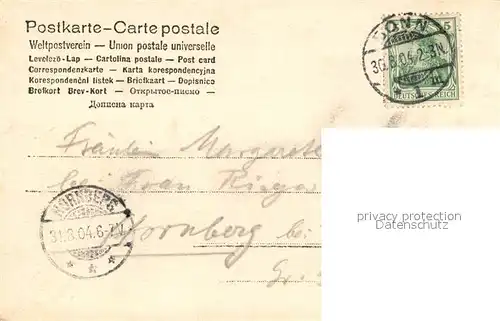 Postkarte – Carte postale
Weltpostverein — Union postale universelle
Levelező-Lap — Cartolina postale — Post card
Correspondenzkarte — Karta korespondencyjna
Korespondenční listek — Briefkaart — Dopisnica
Brefkort Brev-Kort — Открытое-письмо —
Дописна карта
BONN
30.8.04.2-3N.
* 1 m
5
DEUTSCHES REICH
Fräulein Margarete
bei Frau
Hornberg bei
HORNBERG
31.8.04.6-7N.
* * *
privacy protection
Datenschutz